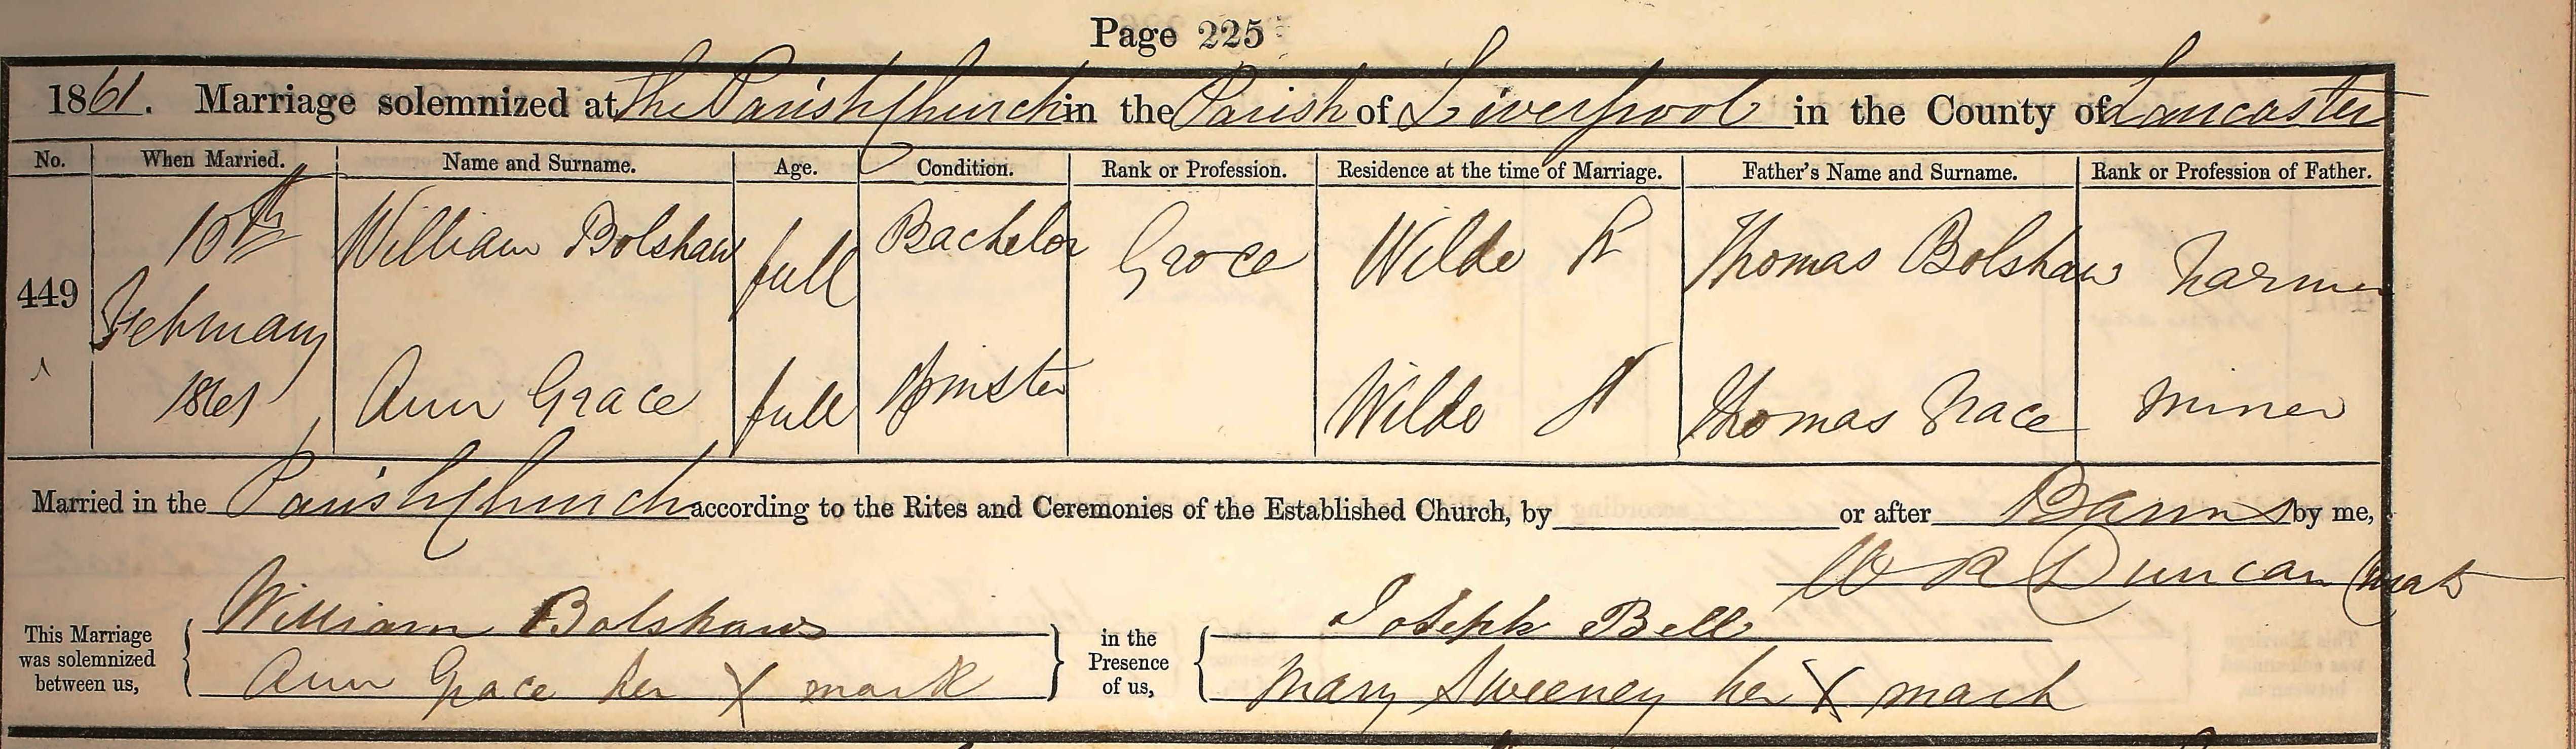 Page 225
1861. Marriage solemnized at The Parish Church in the Parish of Liverpool in the County of Lancaster
No. When Married. Name and Surname. Age. Condition. Rank or Profession. Residence at the time of Marriage. Father's Name and Surname. Rank or Profession of Father.
449 10th February 1861 William Bolshaw full Bachelor Grocer Wilde St Thomas Bolshaw Farmer
Ann Grace full Spinster Wilde St Thomas Grace Miner
Married in the Parish Church according to the Rites and Ceremonies of the Established Church, by or after Banns by me,
W R Duncan Curate
This Marriage was solemnized between us, William Bolshaw in the Presence of us, Joseph Bell
Ann Grace her X mark Mary Sweeney her X mark